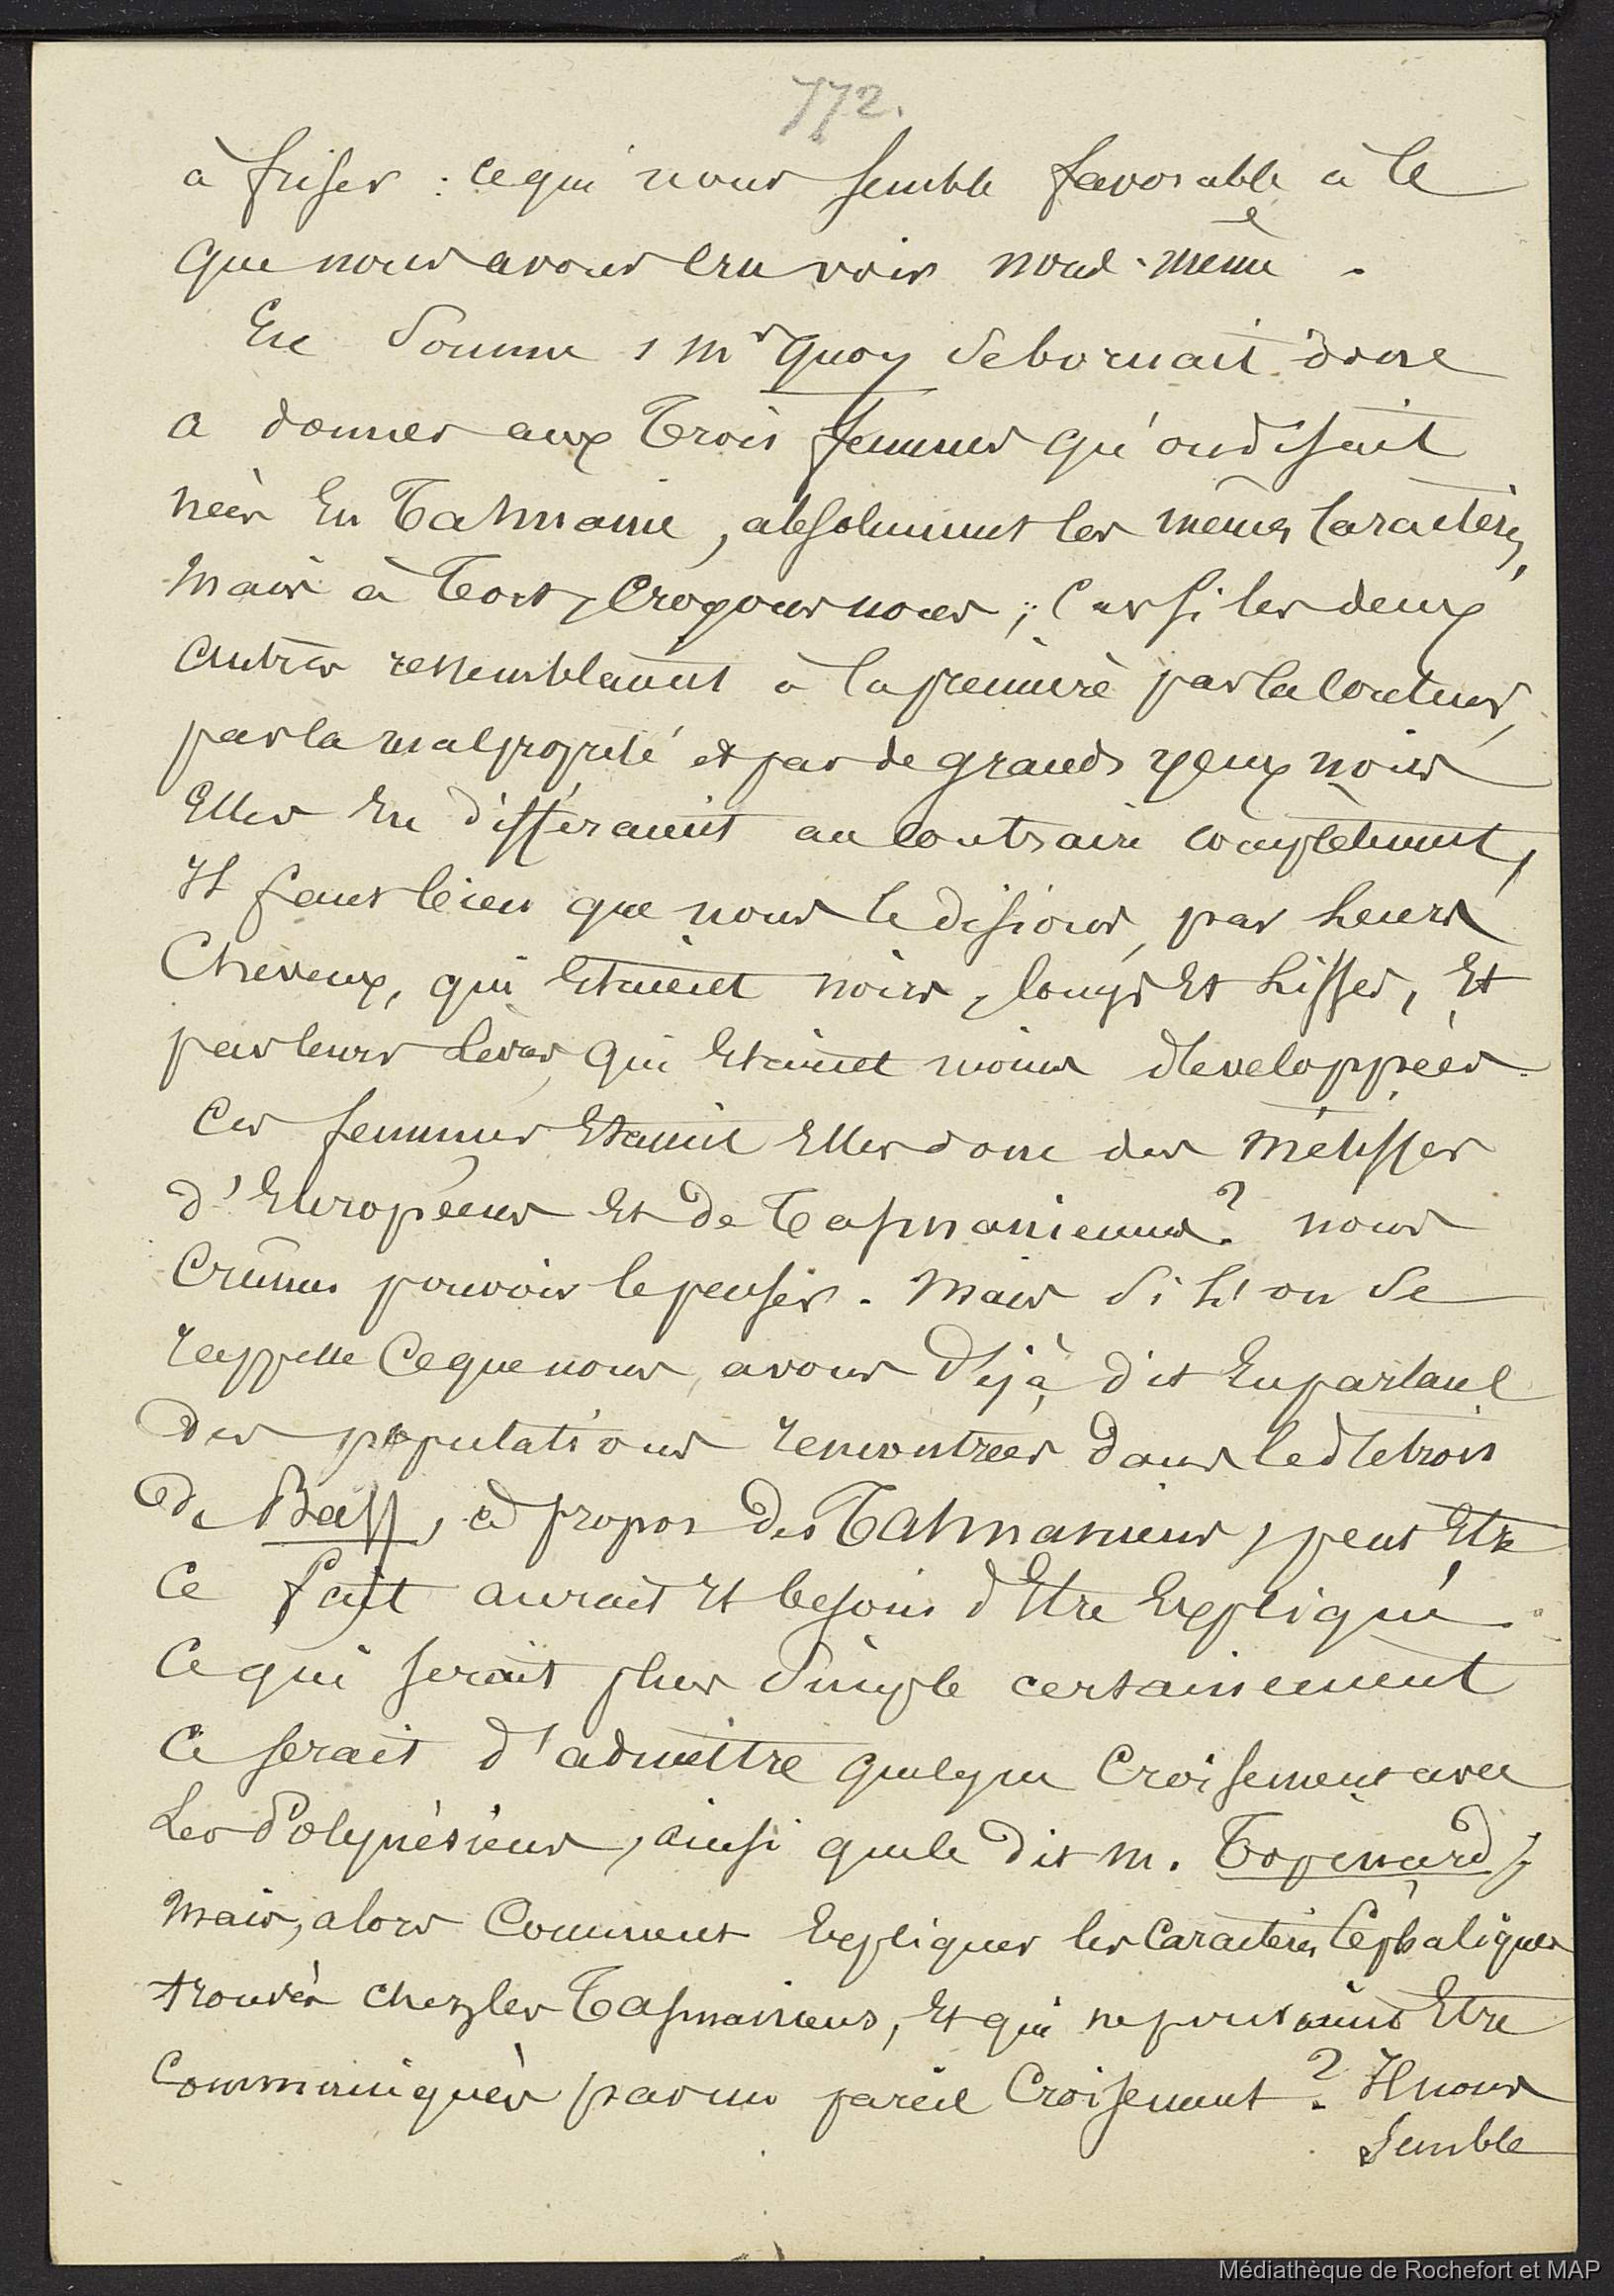 772.
à friser : ce qui nous semble favorable à ce
que nous avons cru voir nous-même.
En somme, Mr Quoy se bornait donc
a donner aux trois femmes qu'on disait
nées en Tasmanie, absolument les mêmes caractères,
mais à tort, croyons nous ; car si les deux
autres ressemblaient à la première par la couleur,
par la malpropreté et par de grands yeux noirs
Elles en différaient au contraire complètement,
Il faut bien que nous le disions, par leurs
Cheveux, qui étaient noirs, longs et lisses, et
par leurs lèvres, qui étaient moins développées.
Ces femmes étaient elles donc des métisses
d'Européens et de Tasmaniennes ? nous
crûmes pouvoir le penser. Mais si l'on se
rappelle ce que nous avons déjà dit en parlant
des populations rencontrées dans le détroit
de Bass, à propos des Tasmaniens, peut être
ce fait aurait et besoin d'être expliqué.
Ce qui serait plus simple certainement
ce serait d'admettre quelque croisement avec
Les Polynésiens, ainsi que le dit M. Topinard ;
mais, alors comment expliquer les caractères céphaliques
trouvés chez les Tasmaniens, et qui ne pouvaient être
communiqués par un pareil croisement ? Il nous
semble
Médiathèque de Rochefort et MAP